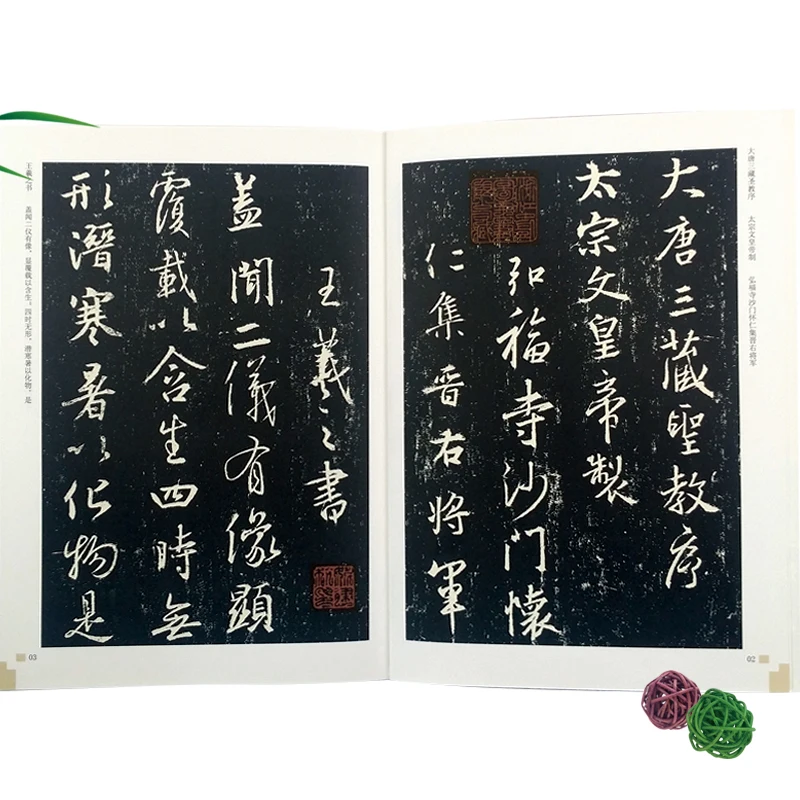 大唐三藏聖教序
太宗文皇帝製
弘福寺沙門懷
仁集晋右將軍
大唐三藏圣教序 太宗文皇帝制 弘福寺沙门怀仁集晋右将军
02
王羲之書
蓋聞二儀有像顯
覆載以含生四時無
形潛寒暑以化物是
王羲之书 盖闻二仪有像，显覆载以含生；四时无形，潜寒暑以化物。是
03